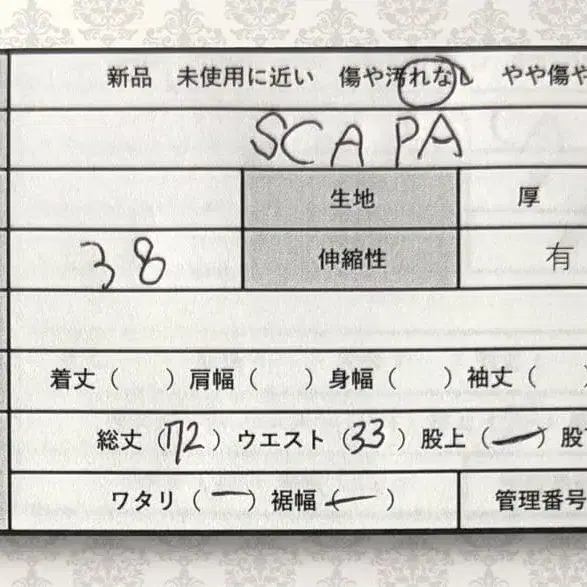 新品 未使用に近い 傷や汚れなし やや傷や
SCAPA
生地 厚
38 伸縮性 有
着丈（ ）肩幅（ ）身幅（ ）袖丈（ ）
総丈（72）ウエスト（33）股上（ー）股下
ワタリ（ー）裾幅（ー）
管理番号